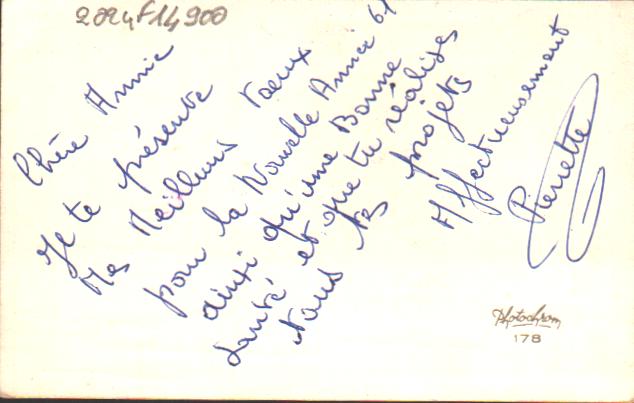 2024F14900
Chère Annie
Je te présente
Mes Meilleurs Vœux
pour la Nouvelle Année 61
ainsi qu'une Bonne
Santé et que tu réalises
tous tes projets
Affectueusement
Pierrette
Photochrom
178